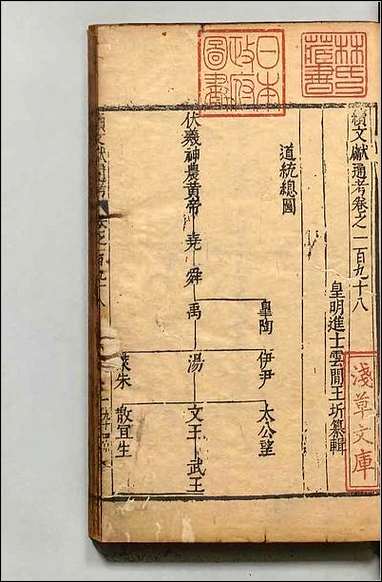 續文獻通考卷之一百九十八
皇明進士雲間王圻纂輯
道統總圖
伏羲神農黃帝堯舜禹湯文王武王
皇陶伊尹太公望
萊朱散宜生
日本
政府
圖書
林氏
藏書
淺草文庫